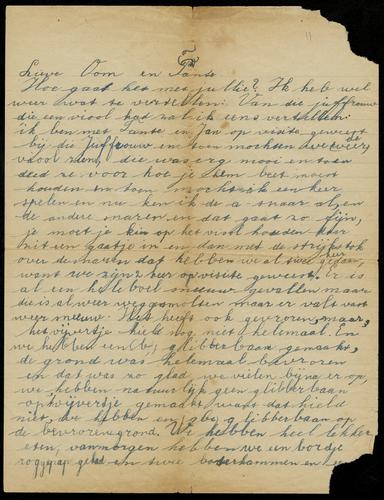 Lieve Oom en Tante
Hoe gaat het met jullie? Ik heb wel
weer wat te vertellen. Van die juffrouw
die een viool had zal ik eens vertellen.
ik ben met Tante en Jan op visite geweest
bij die Juffrouw en toen mochten we de
viool zien, die was erg mooi en toen
deed ze voor hoe je hem beet moest
houden en toen mocht ik een keer
spelen en nu ken ik de a-snaar al en
de andere snaren en dat gaat zo fijn,
je moet je kin op het viool houden daar
zit een gaatje in en dan met de strijkstok
over de snaren dat hebben we al twee keer gedaan,
want we zijn 2 keer op visite geweest. Er is
al een heleboel sneeuw gevallen maar
die is al weer weggesmolten maar er valt vast
weer nieuw. Het heeft ook gevroren, maar
het vijvertje hield nog niet helemaal. En
we hebben een glibberbaan gemaakt,
de grond was helemaal bevroren
en dat was zo glad we vielen bijna er op,
we hebben natuurlijk geen glibberbaan
op 't vijvertje gemaakt want dat hield
niet, we hebben een glibberbaan op
de bevroren grond. We hebben heel lekker
eten, vanmorgen hebben we een bordje
roggepap gehad en twee boterhammen en